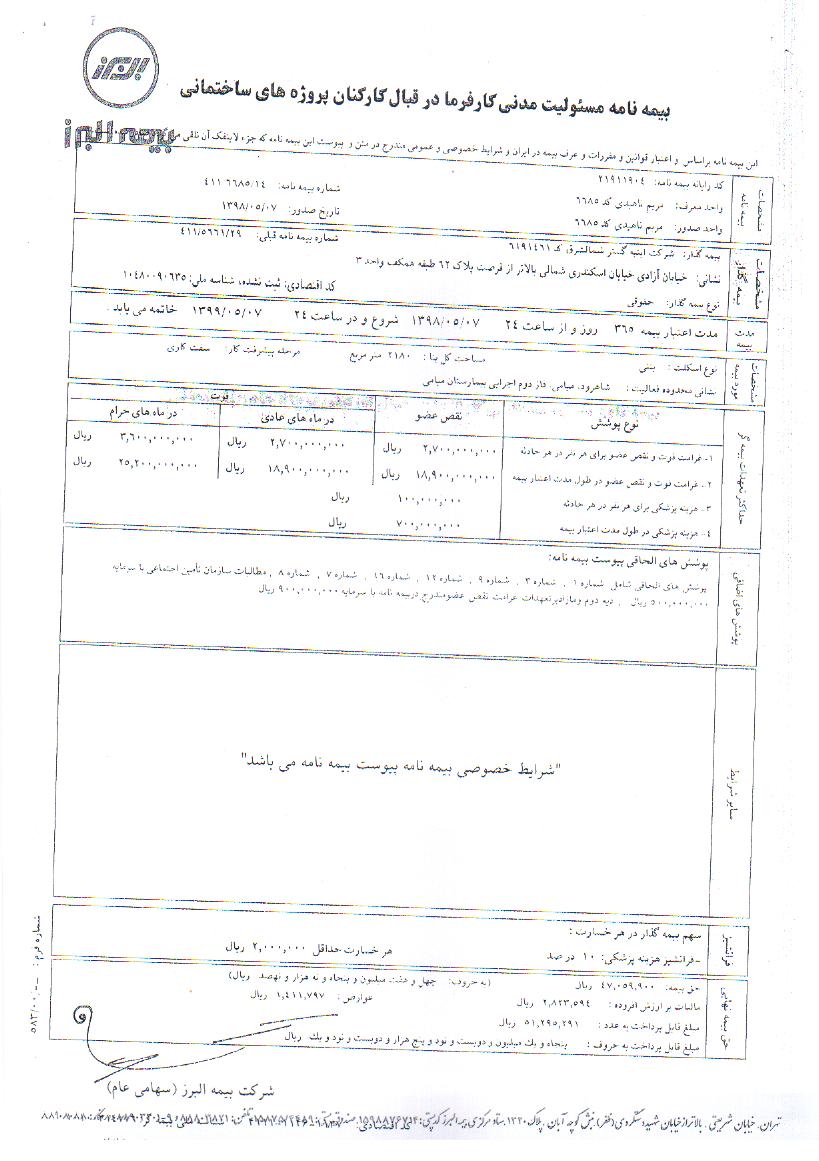 البرز
بیمه نامه مسئولیت مدنی کارفرما در قبال کارکنان پروژه های ساختمانی
بیمه البرز
این بیمه نامه براساس و اعتبار قوانین و مقررات و عرف بیمه در ایران و شرایط خصوصی و عمومی مندرج در متن و پیوست این بیمه نامه که جزء لاینفک آن تلقی
مشخصات بیمه نامه
کد رایانه بیمه نامه: ۲۱۹۱۱۹۰۴ شماره بیمه نامه: ۴۱۱۶۶۸۵/۱۴
واحد معرف: مریم ناهیدی کد ۶۶۸۵ تاریخ صدور: ۱۳۹۸/۰۵/۰۷
واحد صدور: مریم ناهیدی کد ۶۶۸۵
مشخصات بیمه گذار
بیمه گذار: شرکت ابنیه گستر شمالشرق کد ۶۱۹۱۴۶۱ شماره بیمه نامه قبلی: ۴۱۱/۵۶۶۱/۲۹
نشانی: خیابان آزادی خیابان اسکندری شمالی بالاتر از فرصت پلاک ۶۲ طبقه همکف واحد ۳
نوع بیمه گذار: حقوقی کد اقتصادی: ثبت نشده، شناسه ملی: ۱۰۴۸۰۰۹۰۶۳۵
مدت بیمه
مدت اعتبار بیمه ۳۶۵ روز و از ساعت ۲۴ ۱۳۹۸/۰۵/۰۷ شروع و در ساعت ۲۴ ۱۳۹۹/۰۵/۰۷ خاتمه می یابد.
مشخصات مورد بیمه
نوع اسکلت: بتنی مساحت کل بنا: ۲۱۸۰ متر مربع مرحله پیشرفت کار: سفت کاری
نشانی محدوده فعالیت: شاهرود، میامی، فاز دوم اجرایی بیمارستان میامی
حداکثر تعهدات بیمه گر
نوع پوشش نقص عضو فوت
در ماه های عادی در ماه های حرام
۱- غرامت فوت و نقص عضو برای هر نفر در هر حادثه ۲,۷۰۰,۰۰۰,۰۰۰ ریال ۲,۷۰۰,۰۰۰,۰۰۰ ریال ۳,۶۰۰,۰۰۰,۰۰۰ ریال
۲- غرامت فوت و نقص عضو در طول مدت اعتبار بیمه ۱۸,۹۰۰,۰۰۰,۰۰۰ ریال ۱۸,۹۰۰,۰۰۰,۰۰۰ ریال ۲۵,۲۰۰,۰۰۰,۰۰۰ ریال
۳- هزینه پزشکی برای هر نفر در هر حادثه ۱۰۰,۰۰۰,۰۰۰ ریال
۴- هزینه پزشکی در طول مدت اعتبار بیمه ۷۰۰,۰۰۰,۰۰۰ ریال
پوشش های اضافی
پوشش های الحاقی پیوست بیمه نامه:
پوشش های الحاقی شامل شماره ۱ , شماره ۳ , شماره ۹ , شماره ۱۲ , شماره ۱۶ , شماره ۷ , شماره ۸ , مطالبات سازمان تأمین اجتماعی با سرمایه
۵۰۰,۰۰۰,۰۰۰ ریال , دیه دوم ومازادبرتعهدات غرامت نقص عضومندرج دربیمه نامه با سرمایه ۹۰۰,۰۰۰,۰۰۰ ریال
سایر شرایط
"شرایط خصوصی بیمه نامه پیوست بیمه نامه می باشد"
فرانشیز
سهم بیمه گذار در هر خسارت :
-فرانشیز هزینه پزشکی: ۱۰ درصد هر خسارت حداقل ۲,۰۰۰,۰۰۰ ریال
حق بیمه نهایی
حق بیمه: ۴۷,۰۵۹,۹۰۰ ریال (به حروف: چهل و هفت میلیون و پنجاه و نه هزار و نهصد ریال)
مالیات بر ارزش افزوده: ۲,۸۲۳,۵۹۴ ریال عوارض: ۱,۴۱۱,۷۹۷ ریال
مبلغ قابل پرداخت به عدد: ۵۱,۲۹۵,۲۹۱ ریال
مبلغ قابل پرداخت به حروف: پنجاه و یک میلیون و دویست و نود و پنج هزار و دویست و نود و یک ریال
شماره فرم: ۵۸۳/۰۰/--
شرکت بیمه البرز (سهامی عام)
تهران، خیابان شریعتی، بالاتر از خیابان شهید دستگردی (ظفر)، نبش کوچه آبان، پلاک ۱۳۲۰ ستاد مرکزی بیمه البرز کدپستی: